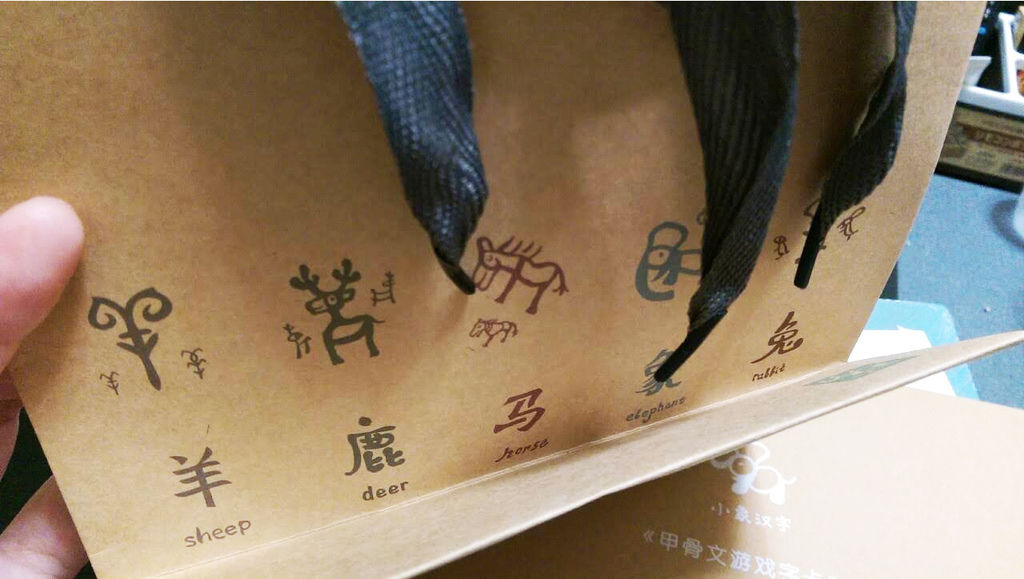 羊
sheep
鹿
deer
马
horse
象
elephant
兔
rabbit
小象汉字
《甲骨文游戏字卡